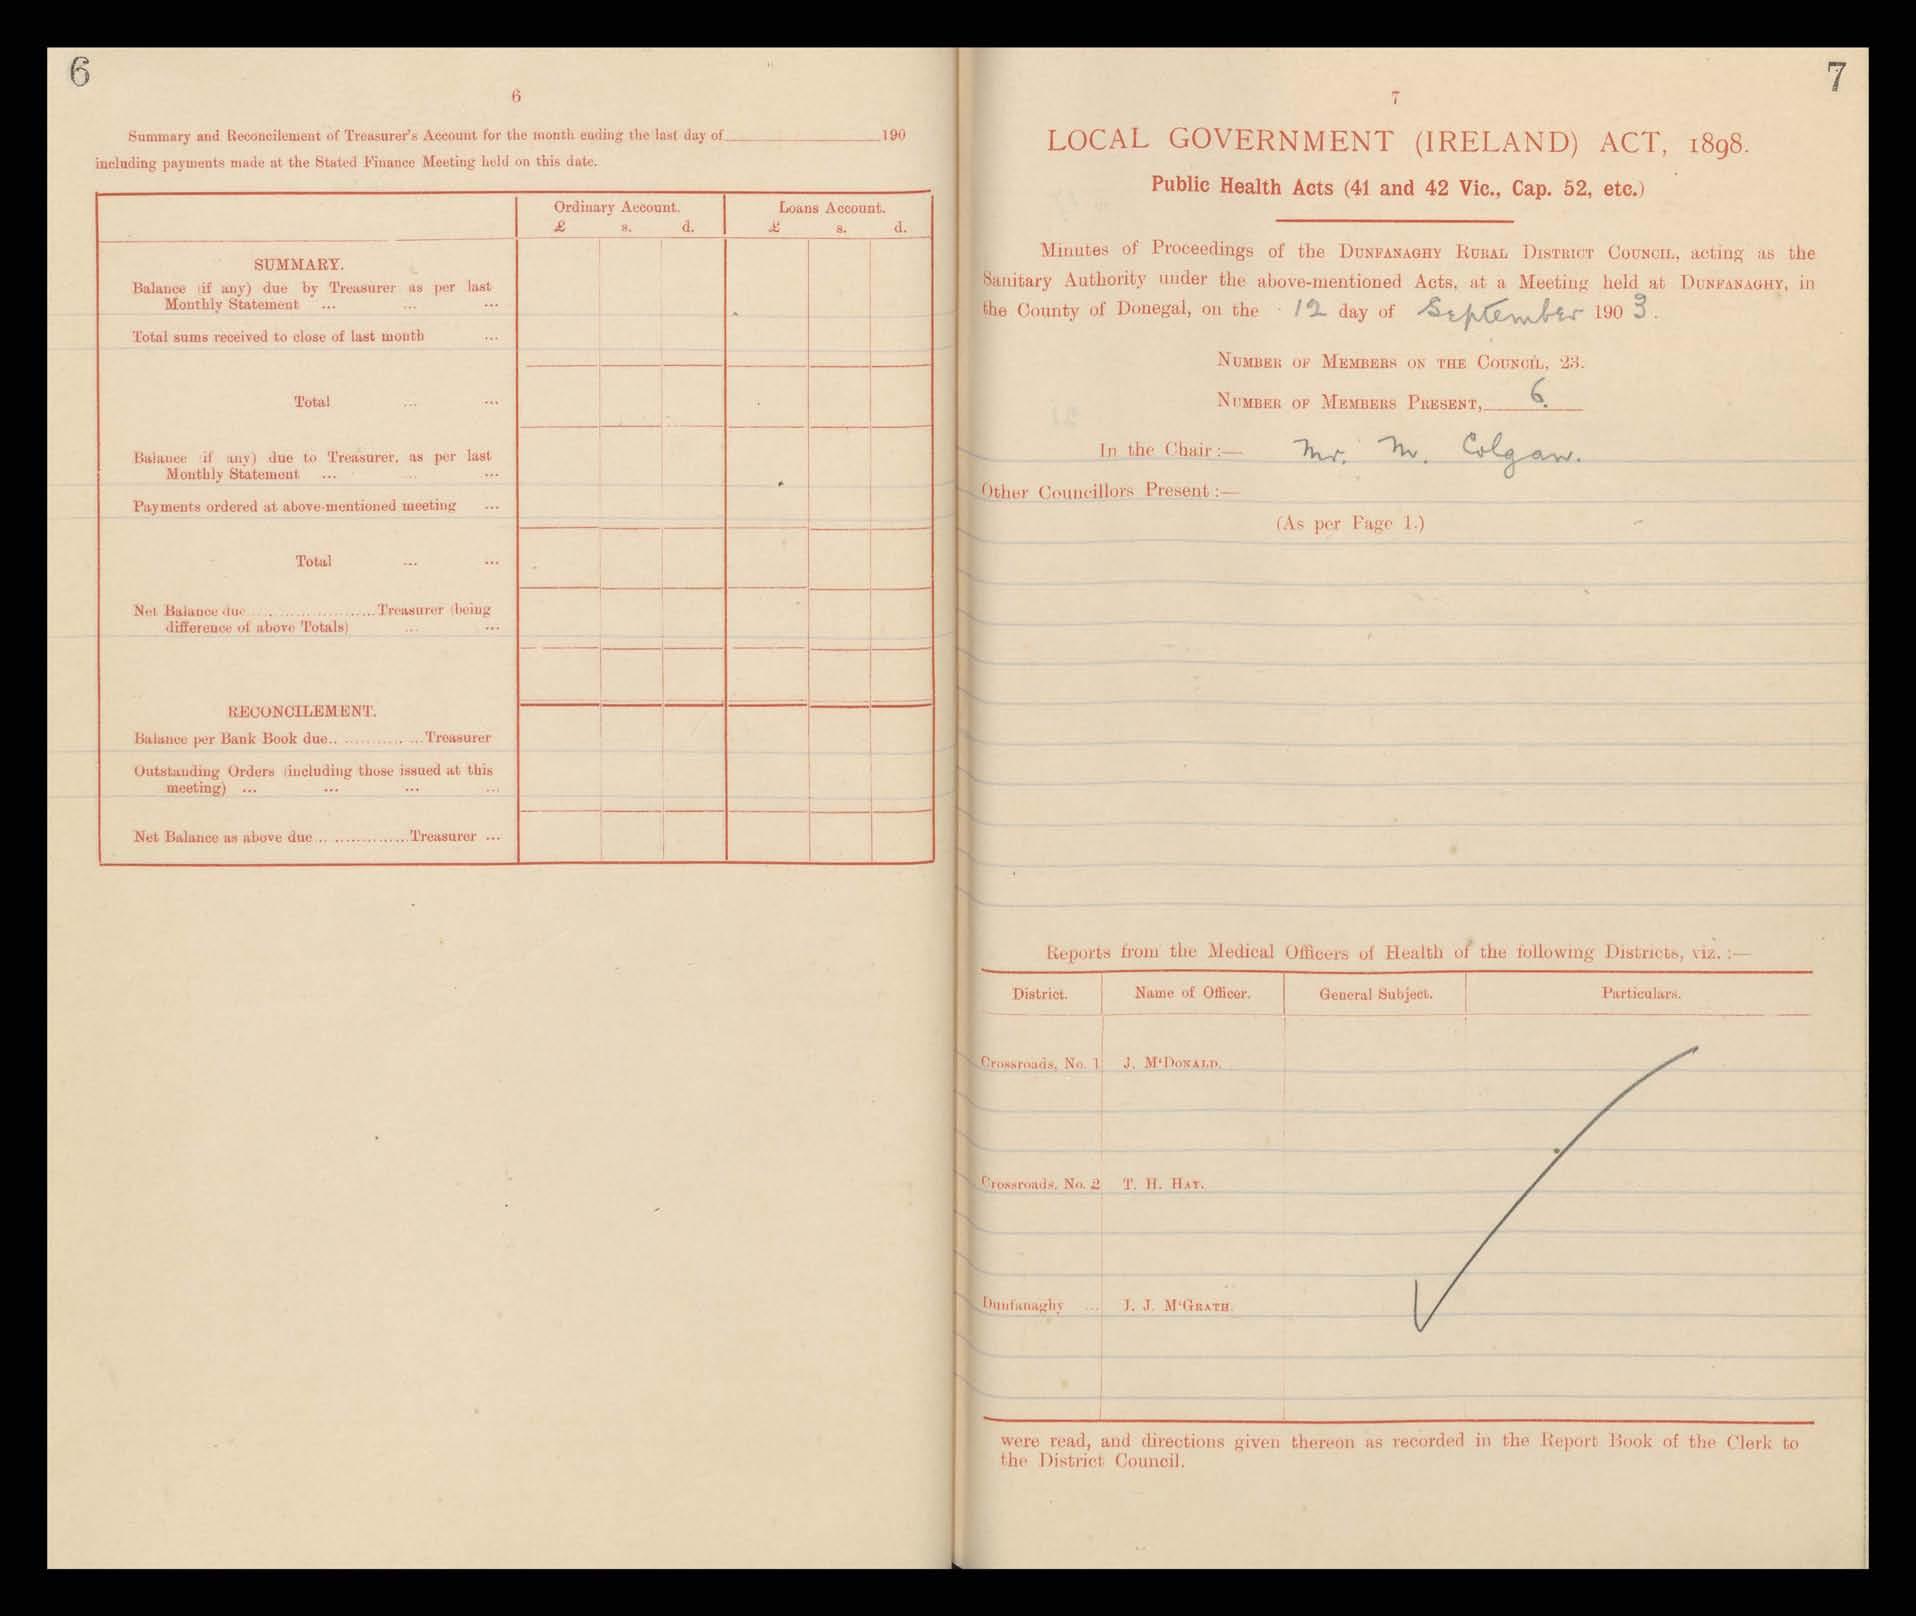 6
6
Summary and Reconcilement of Treasurer's Account for the month ending the last day of 190
including payments made at the Stated Finance Meeting held on this date.
Ordinary Account. Loans Account.
£ s. d. £ s. d.
SUMMARY.
Balance (if any) due by Treasurer as per last
Monthly Statement ... ... ...
Total sums received to close of last month ...
Total ... ...
Balance (if any) due to Treasurer, as per last
Monthly Statement ... ... ...
Payments ordered at above-mentioned meeting ...
Total ... ...
Net Balance due........................Treasurer (being
difference of above Totals) ... ...
RECONCILEMENT.
Balance per Bank Book due.................Treasurer
Outstanding Orders (including those issued at this
meeting) ... ... ... ...
Net Balance as above due.................Treasurer ...
7
7
LOCAL GOVERNMENT (IRELAND) ACT, 1898.
Public Health Acts (41 and 42 Vic., Cap. 52, etc.)
Minutes of Proceedings of the DUNFANAGHY RURAL DISTRICT COUNCIL, acting as the
Sanitary Authority under the above-mentioned Acts, at a Meeting held at DUNFANAGHY, in
the County of Donegal, on the 12 day of September 1903.
NUMBER OF MEMBERS ON THE COUNCIL, 23.
NUMBER OF MEMBERS PRESENT, 6.
In the Chair :— Mr. M. Colgan.
Other Councillors Present :—
(As per Page 1.)
Reports from the Medical Officers of Health of the following Districts, viz. :—
District. Name of Officer. General Subject. Particulars.
Crossroads, No. 1 J. M'DONALD.
Crossroads, No. 2 T. H. HAY.
Dunfanaghy ... J. J. M'GRATH.
were read, and directions given thereon as recorded in the Report Book of the Clerk to
the District Council.